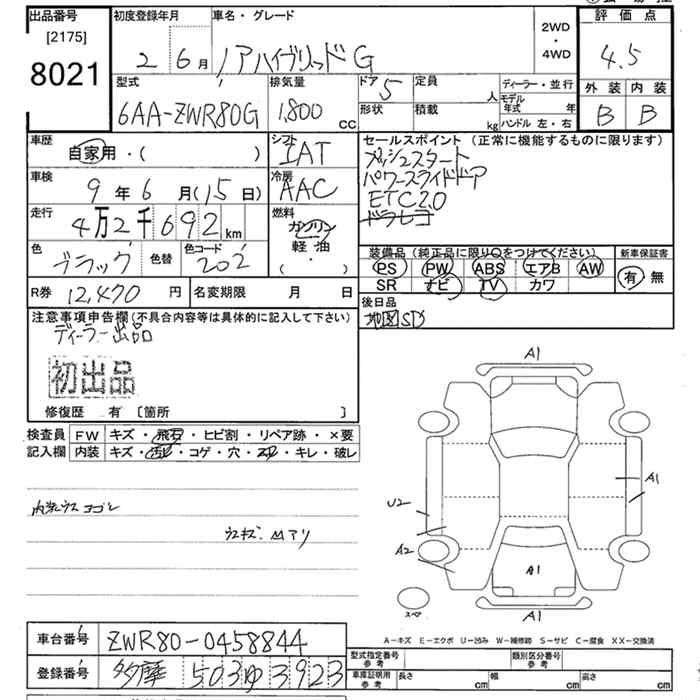 出品番号 初度登録年月 車名・グレード 評価点
[2175] 2 6月 ノアハイブリッドG 2WD・4WD 4.5
8021
型式 排気量 ドア 定員 ディーラー・並行 外装 内装
6AA-ZWR80G 1,800 cc 5 人 モデル年式 年 B B
形状 積載 kg ハンドル 左・右
車歴 自家用・( ) シフト IAT セールスポイント(正常に機能するものに限ります)
プッシュスタート
車検 9年6月(15日) 冷房 AAC パワースライドドア
ETC2.0
走行 4万2千692km 燃料 ガソリン・軽油・( ) ドラレコ
色 ブラック 色替 色コード 202
装備品(純正品に限り○をつけてください) 新車保証書
PS PW ABS エアB AW 有 無
SR ナビ TV カワ
R券 12,470円 名変期限 月 日
後日品
地図SD
注意事項申告欄(不具合内容等は具体的に記入して下さい)
ディーラー出品
初出品
修復歴 有 [箇所 ]
検査員記入欄 FW キズ・飛石・ヒビ割・リペア跡・×要
内装 キズ・汚レ・コゲ・穴・スレ・キレ・破レ
内装ウスヨゴレ
ウスキズ.凹アリ
A1
A1
U2
A2
A1
スペア
A1
A-キズ E-エクボ U-凹み W-補修跡 S-サビ C-腐食 XX-交換済
車台番号 ZWR80-0458844
登録番号 多摩 503 ゆ 3923
型式指定番号 参考 類別区分番号 参考
車庫証明用 参考 長さ cm 幅 cm 高さ cm